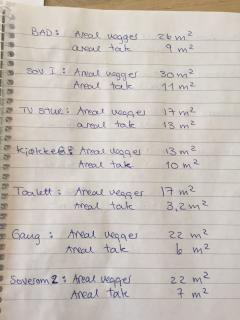 BAD: Areal vegger 26 m²
areal tak 9 m²
SOV I: Areal vegger 30 m²
Areal tak 11 m²
TV stue: Areal vegger 17 m²
areal tak 13 m²
Kjøkken: Areal vegger 13 m²
Areal tak 10 m²
Toalett: Areal vegger 17 m²
Areal tak 3,2 m²
Gang: Areal vegger 22 m²
Areal tak 6 m²
Soverom 2: Areal vegger 22 m²
Areal tak 7 m²